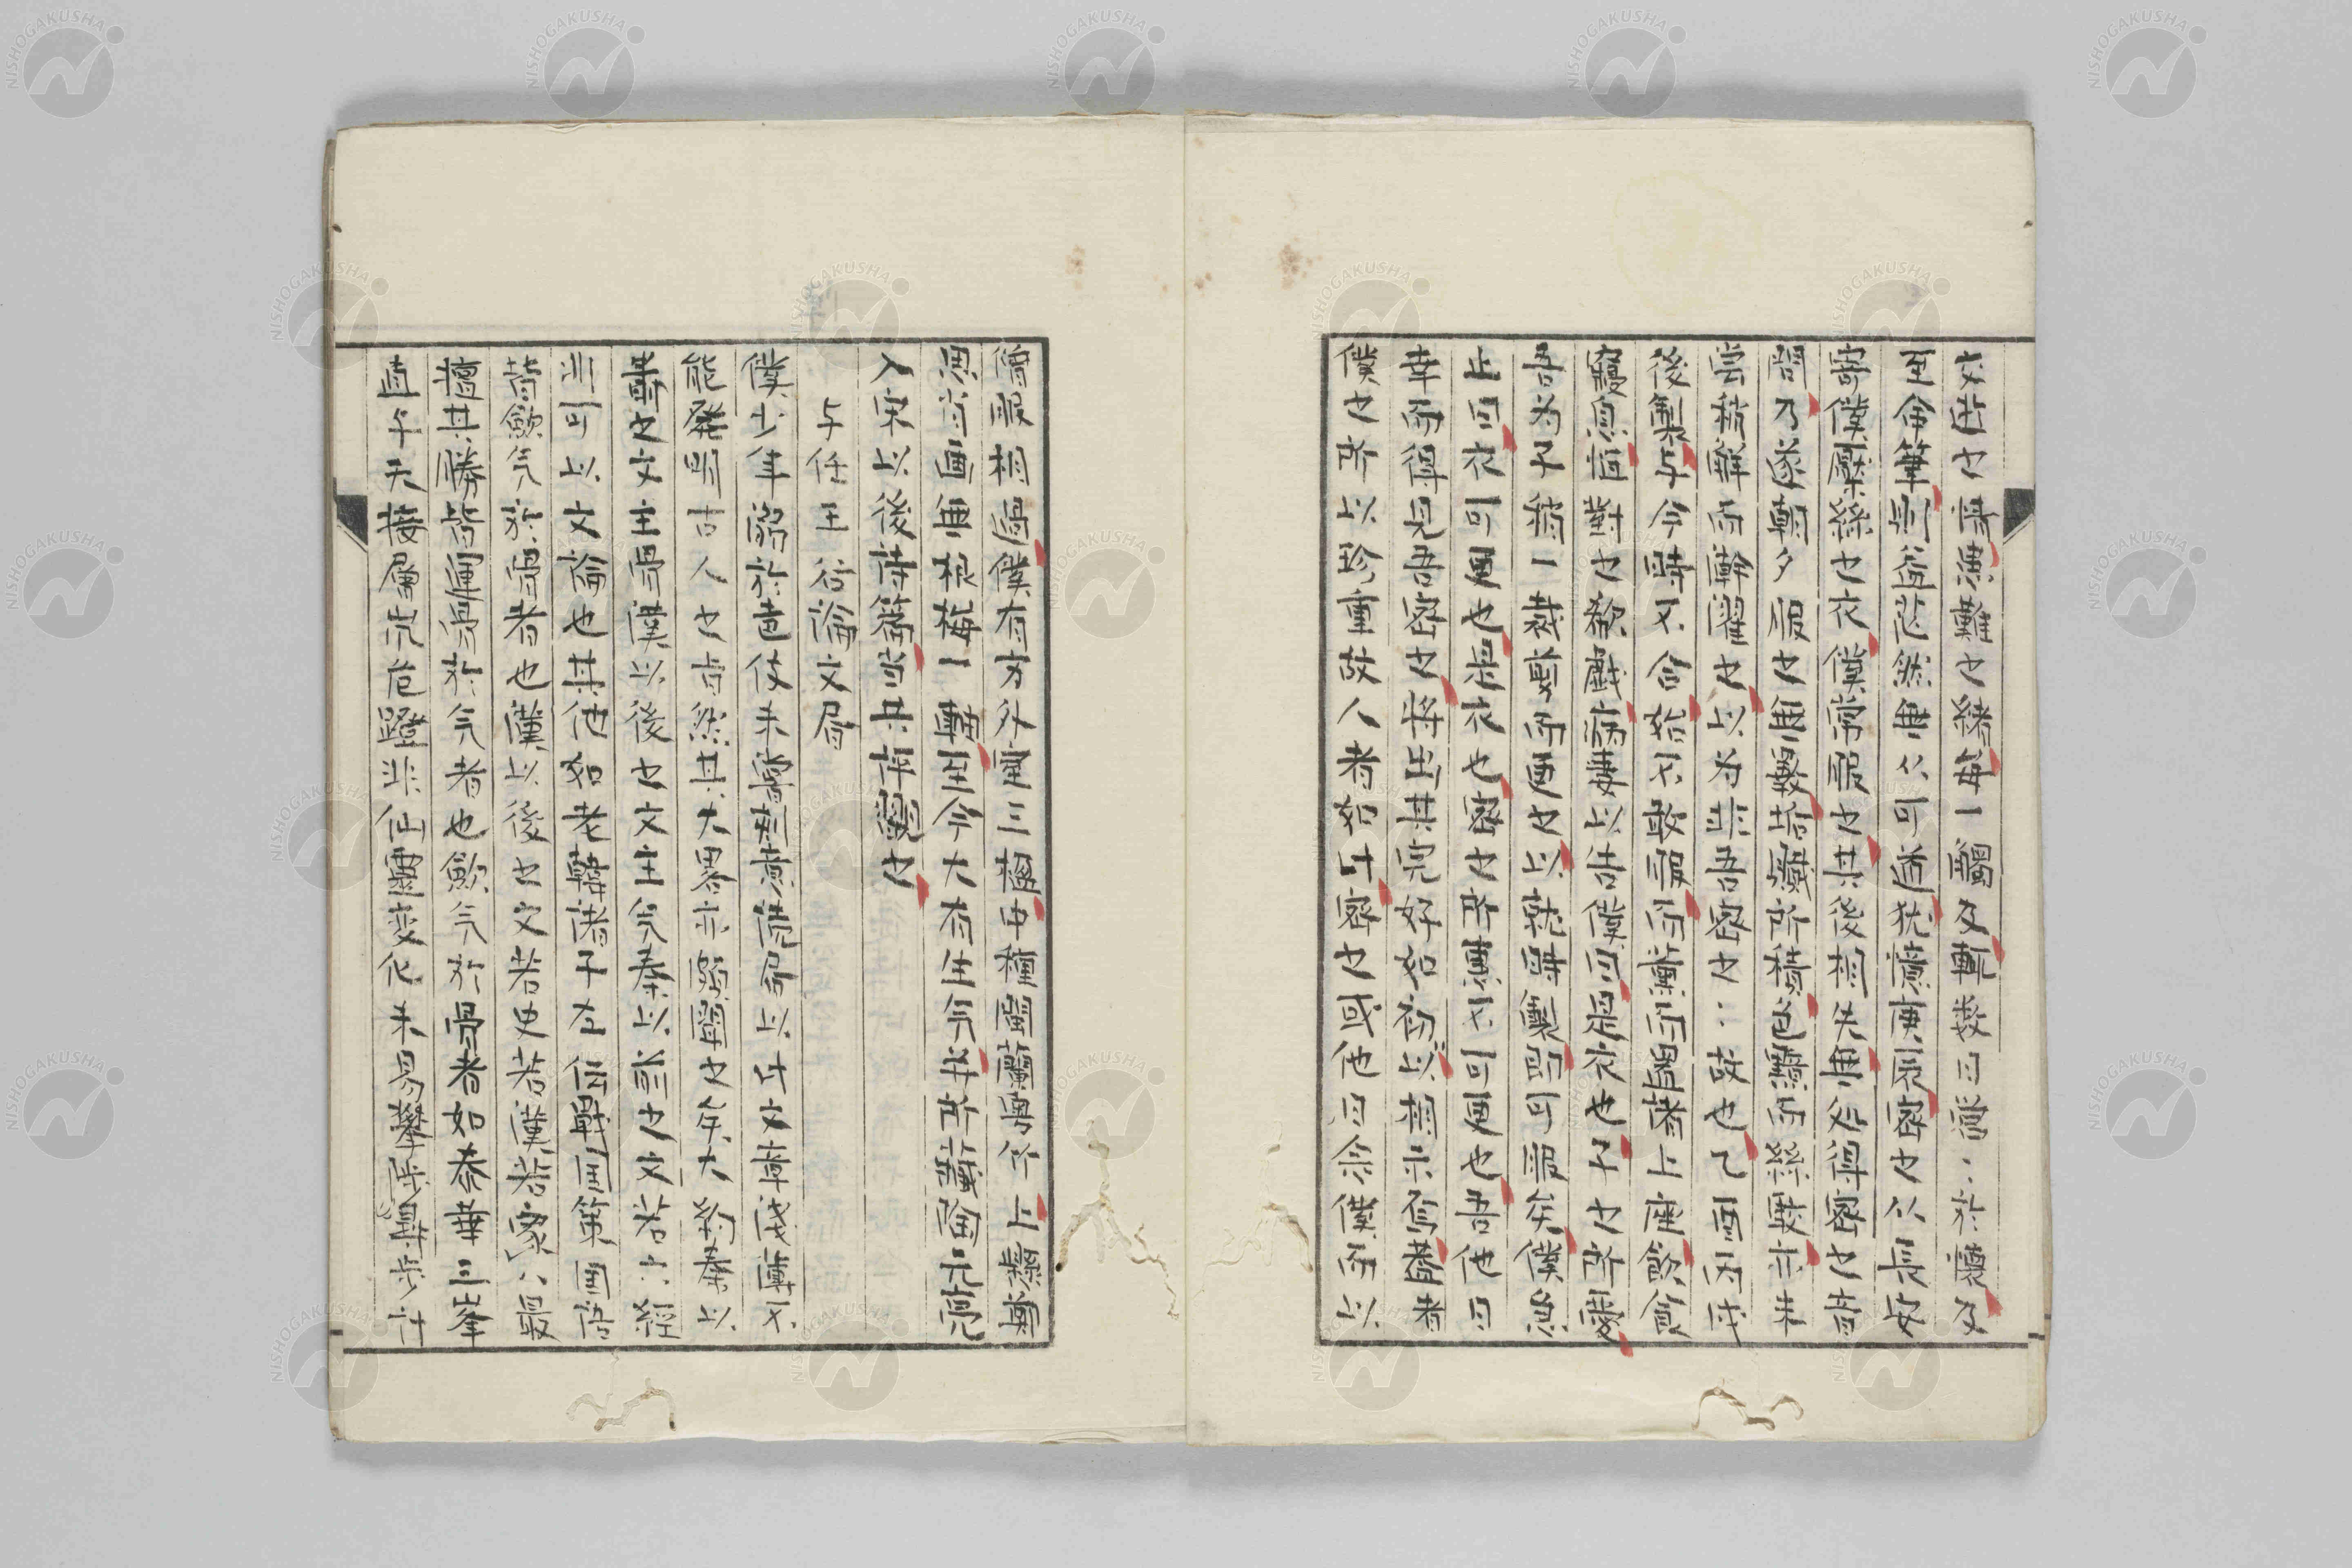 交遊之情患難之緒每一觸及輒数日營〻於懷及
至命筆則益茫然無以可道犹憶庚辰密之以長安
寄僕縻絲之衣僕常服之其後相失無処得密之音
問乃遂朝夕服之無斁垢膩所積色黯而絲敝亦未
嘗稍解而澣濯之以为非吾密之〻故也乙酉丙戌
後製与今時不合始不敢服而藏而置諸上座飲食
寢息恒對之欷歔病妻以告僕曰是衣也子之所愛
吾为子稍一裁剪而更之以就時製即可服矣僕急
止曰衣可更也是衣也密之所惠不可更也吾他日
幸而得見吾密之將出其完好如初以相示有者
僕之所以珍重故人者如此密之或他日念僕而以
僧服相過僕有方外室三楹中種閩蘭粵竹上懸
思肖画無根梅一軸至今大有生气并所藏陶元亮
入宋以後詩篇当共評騭之
与任王谷論文書
僕少年溺於声伎未嘗刻意読書以此文章淺薄不
能発明古人之旨然其大畧亦頗聞之矣大約秦以
前之文主骨漢以後之文主气秦以前之文若六經
非可以文論也其他如老韓諸子左伝戰国策国語
皆歛气於骨者也漢以後之文若史若漢若八家最
擅其勝皆運骨於气者也歛气於骨者如泰華三峯
直与天接層嵐危磴非仙靈変化未易攀陟尋歩計
NISHOGAKUSHA